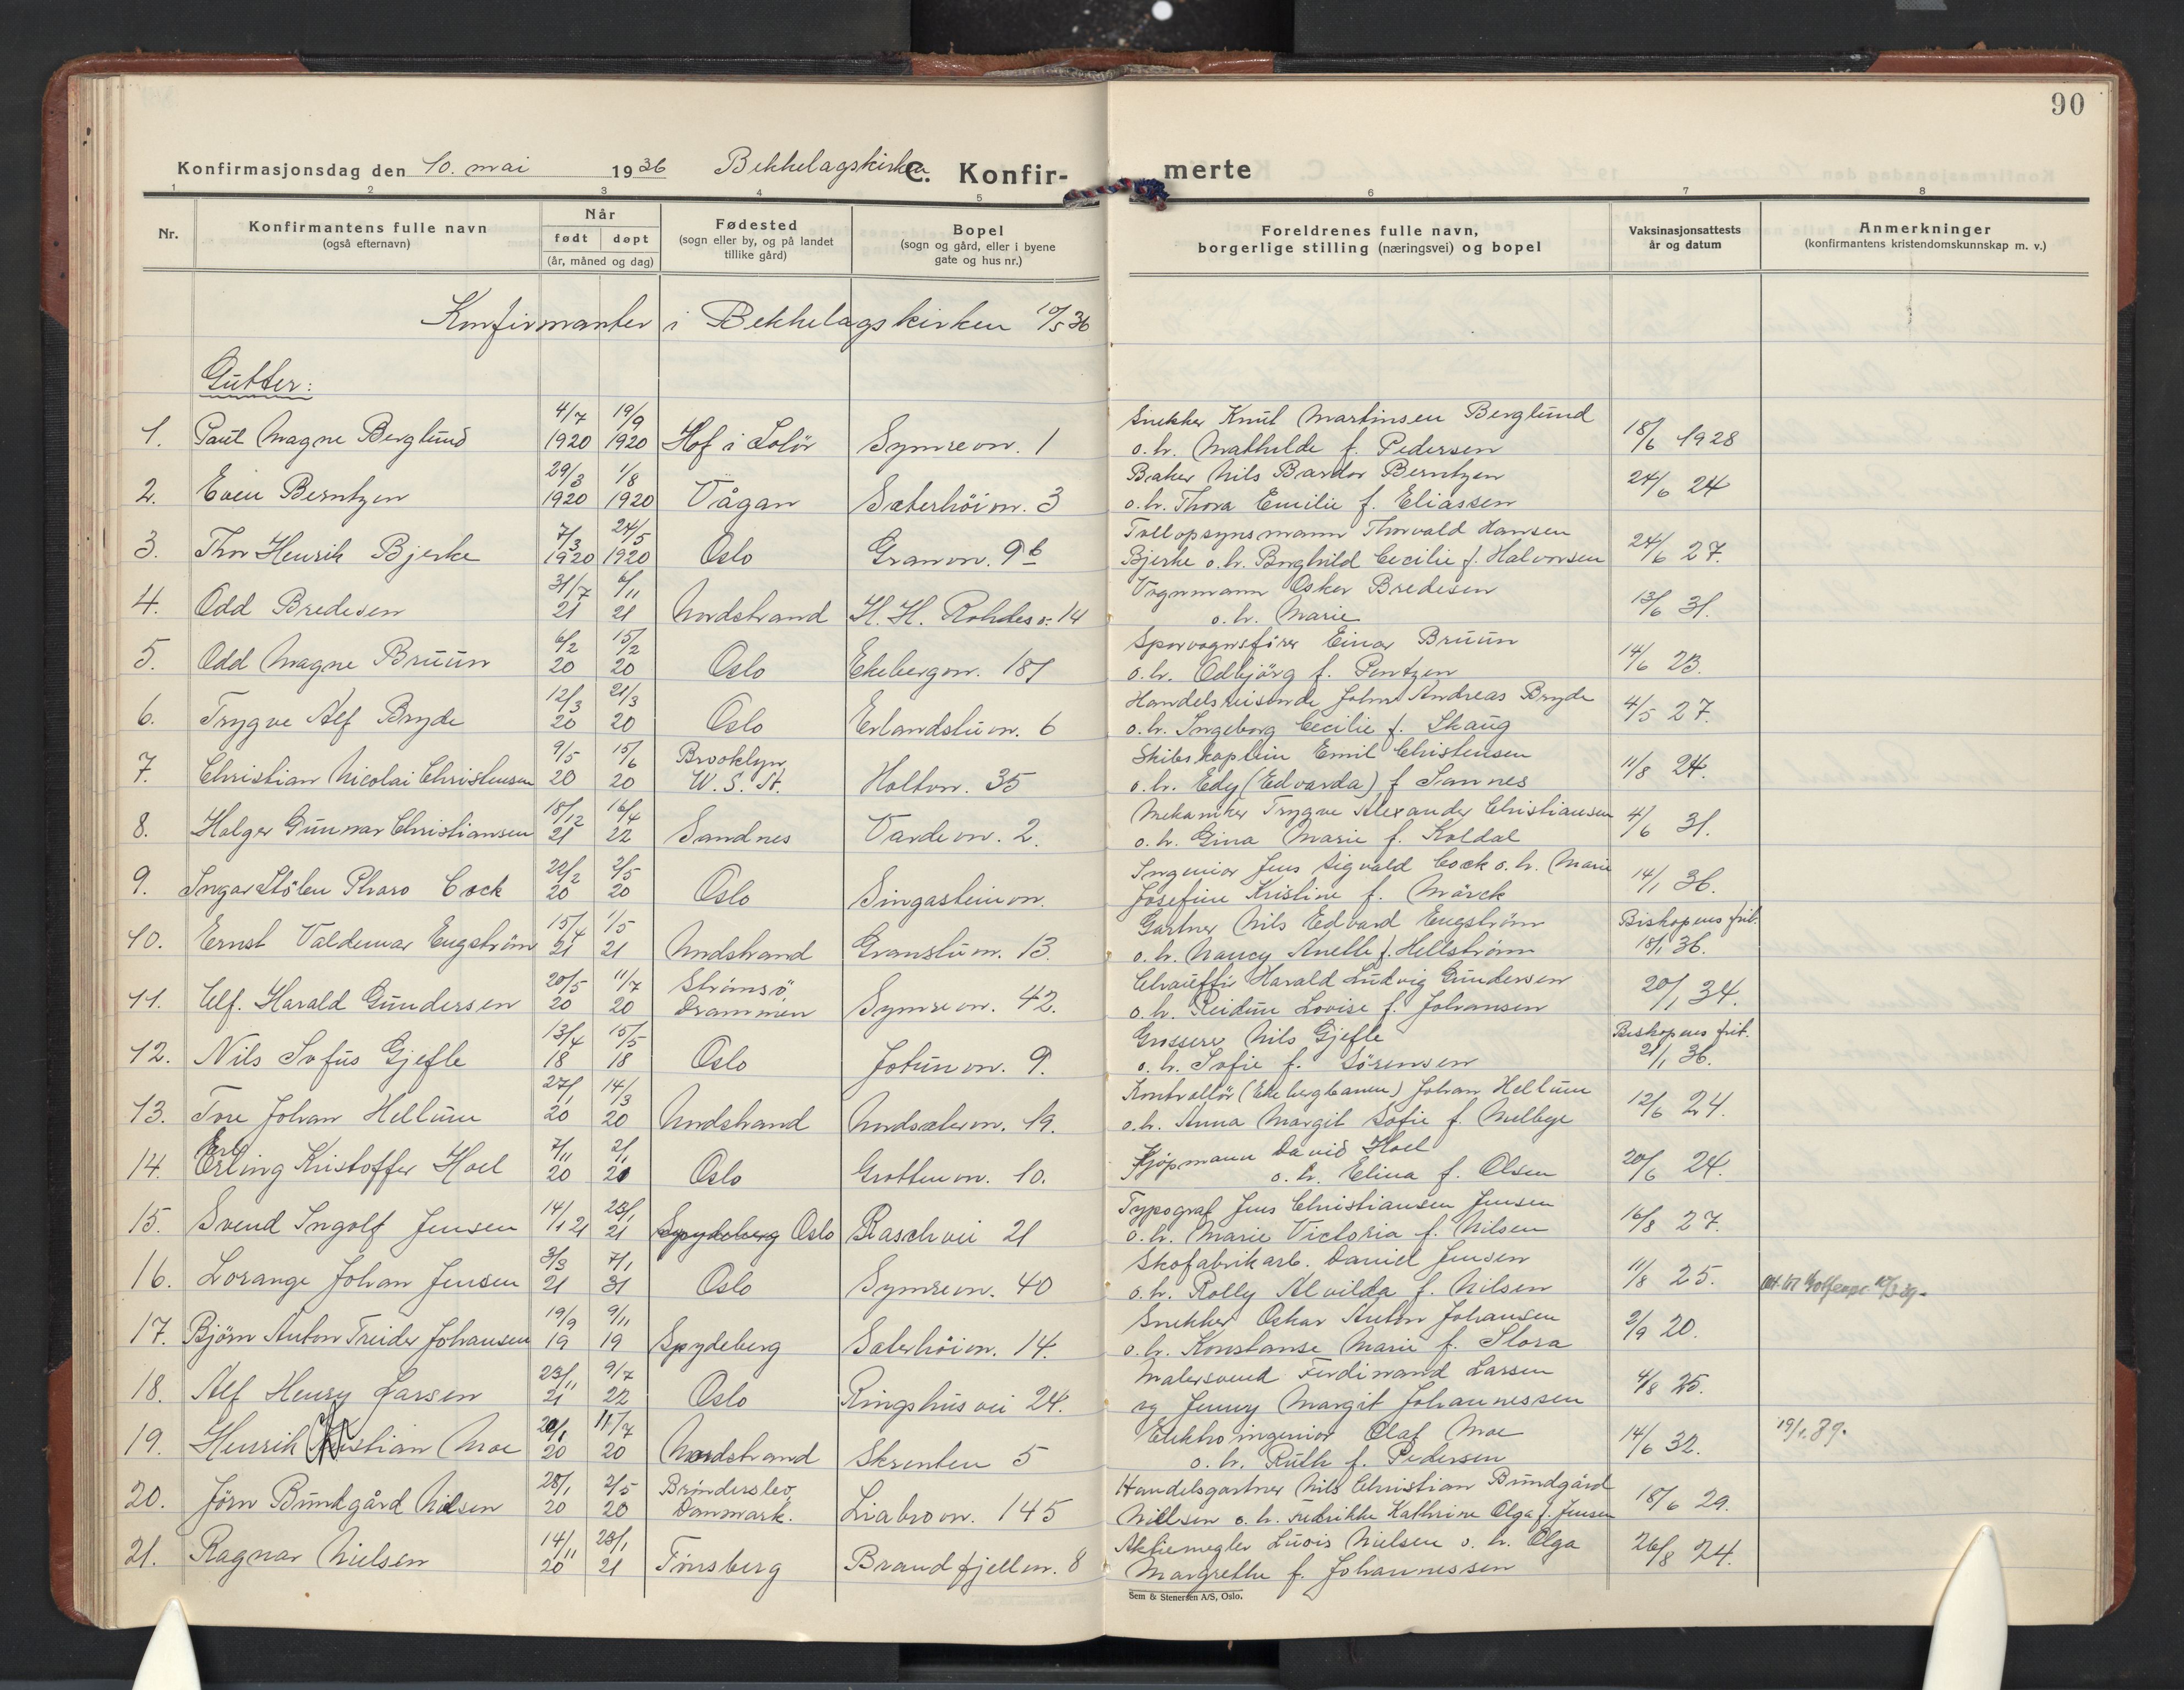 90
Konfirmasjonsdag den 10. mai 1936 Bekkelagskirken C. Konfirmerte
1 2 3 4 5 6 7 8
Nr.
Konfirmantens fulle navn
(også efternavn)
Når
født døpt
(år, måned og dag)
Fødested
(sogn eller by, og på landet
tillike gård)
Bopel
(sogn og gård, eller i byene
gate og hus nr.)
Foreldrenes fulle navn,
borgerlige stilling (næringsvei) og bopel
Vaksinasjonsattests
år og datum
Anmerkninger
(konfirmantens kristendomskunnskap m. v.)
Konfirmanter i Bekkelagskirken 10/5 36
Gutter:
4/7 19/9 Snekker Knut Martinsen Berglund
1. Paul Magne Berglund 1920 1920 Hof i Solør Symrevn. 1 o. h. Mathilde f. Pedersen 18/6 1928
29/3 1/8 Baker Nils Bardor Berntzen
2. Even Berntzen 1920 1920 Vågan Sæterhöivn. 3 o. h. Thora Emilie f. Eliassen 24/6 24
7/3 24/5 Tollopsynsmann Thorvald Hansen
3. Thor Henrik Bjerke 1920 1920 Oslo Granvn. 9b Bjerke o. h. Borghild Cecilie f. Halvorsen 24/6 27.
31/7 6/11 Vognmann Oskar Bredesen
4. Odd Bredesen 21 21 Nordstrand H. H. Rohdes v. 14 o. h. Marie 13/6 31.
6/2 15/2 Sporvognsfører Einar Bruun
5. Odd Magne Bruun 20 20 Oslo Ekebergvn. 187 o. h. Odbjörg f. Pentzen 14/6 23.
12/3 21/3 Handelsreisende John Andreas Bryde
6. Trygve Alf Bryde 20 20 Oslo Erlandsluvn. 6 o. h. Ingeborg Cecilie f. Skaug 4/5 27.
9/5 15/6 Brooklyn Skibskaptein Emil Christensen
7. Christian Nicolai Christensen 20 20 U. S. A. Holtvn. 35 o. h. Edy (Edvarda) f. Sannes 11/8 24.
18/12 16/4 Mekaniker Trygve Alexander Christiansen
8. Holger Gunnar Christiansen 21 22 Sandnes Vardevn. 2. o. h. Gina Marie f. Koldal 4/6 31.
22/2 2/5 Ingeniør Jens Sigvald Cock o. h. Marie
9. Ingar Stölen Pharo Cock 20 20 Oslo Singasteinvn. Josefine Kristine f. Mörck 14/1 36.
15/4 1/5 Gartner Nils Edvard Engström Biskopens frit.
10. Ernst Valdemar Engström 21 21 Nordstrand Granstuvn. 13. o. h. Nancy Anette f. Hellström 18/1 36.
20/5 11/7 Strömsö, Chauffør Harald Ludvig Gundersen
11. Ulf. Harald Gundersen 20 20 Drammen Symrevn. 42. o. h. Reidun Lovise f. Johansen 20/1 34.
13/4 15/5 Grosserer Nils Gjefle Biskopens frit.
12. Nils Sofus Gjefle 18 18 Oslo Jotunvn. 9. o. h. Sofie f. Sörensen 21/1 36.
27/1 14/3 Kontrollör (Ekebergbanen) Johan Hellum
13. Tore Johan Hellum 20 20 Nordstrand Nordsætervn. 19. o. h. Anna Margit Sofie f. Melbye 12/6 24.
Erl 7/11 2/1 Kjöpmann David Hoel
14. Erling Kristoffer Hoel 20 21 Oslo Grottenvn. 10. o. h. Elina f. Olsen 20/6 24.
14/1 23/1 Typograf Jens Christiansen Jensen
15. Svend Ingolf Jensen 21 21 Spydeberg Oslo Raschvei 21 o. h. Marie Victoria f. Nilsen 16/8 27.
3/3 7/1 Skofabrikarb. Daniel Jensen
16. Lorange Johan Jensen 21 31 Oslo Symrevn. 40 o. h. Rolly Alvilda f. Nilsen 11/8 25.
19/9 9/11 Snekker Oskar Anton Johansen
17. Björn Anton Treider Johansen 19 19 Spydeberg Sæterhöivn. 14. o. h. Konstanse Marie f. Slora 2/9 20.
23/11 9/7 Malersvend Ferdinand Larsen
18. Alf Henry Larsen 21 22 Oslo Ringshusvei 24. og Jenny Margit Johannessen 4/8 25.
20/1 11/7 Elektroingeniør Olaf Moe
19. Henrik Kristian Moe 20 20 Nordstrand Skrenten 5 o. h. Ruth f. Pedersen 14/6 32. 19/1.39.
28/1 2/5 Brønderslev, Handelsgartner Nils Christian Bundgård
20. Jörn Bundgård Nilsen 20 20 Danmark. Liabrovn. 145 Nillsen o. h. Fredrikke Kathrine Olga f. Jensen 18/6 29.
14/11 23/1 Aktiemegler Luois Nielsen o. h. Olga
21. Ragnar Nielsen 20 21 Tönsberg Brandfjellvn. 8 Margrethe f. Johannessen 26/8 24.
Sem & Stenersen A/S, Oslo.